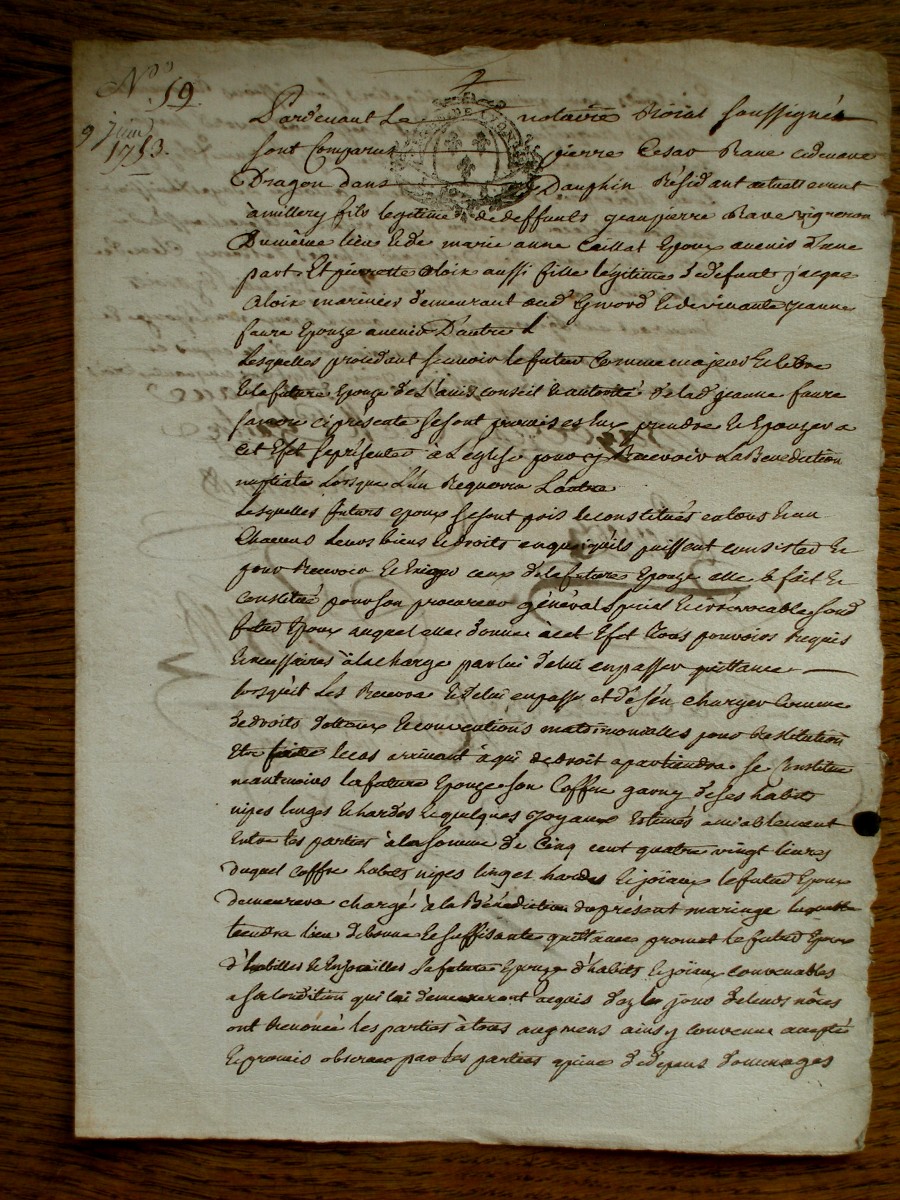 N° 19
9 juin
1753.
DE LYON
Pardevant Le notaire Roial soussigné
sont Comparus pierre Cesar Rave cidevant
Dragon dans Dauphin Résidant actuellement
a millery fils legitime de deffunts jean pierre Rave vigneron
Dumême lieu et de marie anne Caillat Epoux avenir d'une
part Et pierrette aloix aussi fille légitime de defunt jacque
aloix marinier demeurant aud. Givord et de vivante jeanne
faure Epouze avenir D'autre
Lesquelles procedant scavoir le futur Comme majeur et libre
et la future Epouze de L'avis conseil et autorité de lad. jeanne faure
sa mere ci présente se sont promis es eux prendre et Epouzer a
cet Efet se présenter à L'eglise pour y Recevoir La Benediction
nuptiale Lorsque L'un Requerra Lautre
Lesquelles futurs epoux se sont pris et constitués en tous et un
Chacuns leurs biens et droits en quoi qu'ils puissent consister Et
pour Recevoir et Exiger ceux de la future Epouze elle le fait et
constitué pour son procureur général Special et irrévocable sond.
futur Epoux auquel elle donne à cet Efet tous pouvoirs Requis
et necessaires à la charge par lui de lui en passer quittance
lorsqu'il Les Recevra et de lui en passé et de s'en charger Comme
de droits dottaux et conventions matrimonialles pour Restitution
Etre faitte le cas arrivant à qui de droit apartiendra. se Constitue
neantmoins la future Epouze son Coffre garny de ses habits
nipes linges et hardes et quelques joyaux Estimés amiablement
Entre les parties à la somme de Cinq cent quatre vingt livres
duquel Coffre habits nipes linges hardes et joïaux le futur Epoux
demeurera chargé à la Bénédiction du présent mariage laquelle
tiendra lieu de bonne et suffisante quittance promet le futur Epoux
d'habilles et Enjoailles la future Epouze d'habits et joïaux convenables
a sa Condition qui lui demeureront acquis dez le jour de leurs nôces
ont Renoncé les parties à tous augmens ainsy convenu accepté
et promis observer par les parties a peine de depens dommages